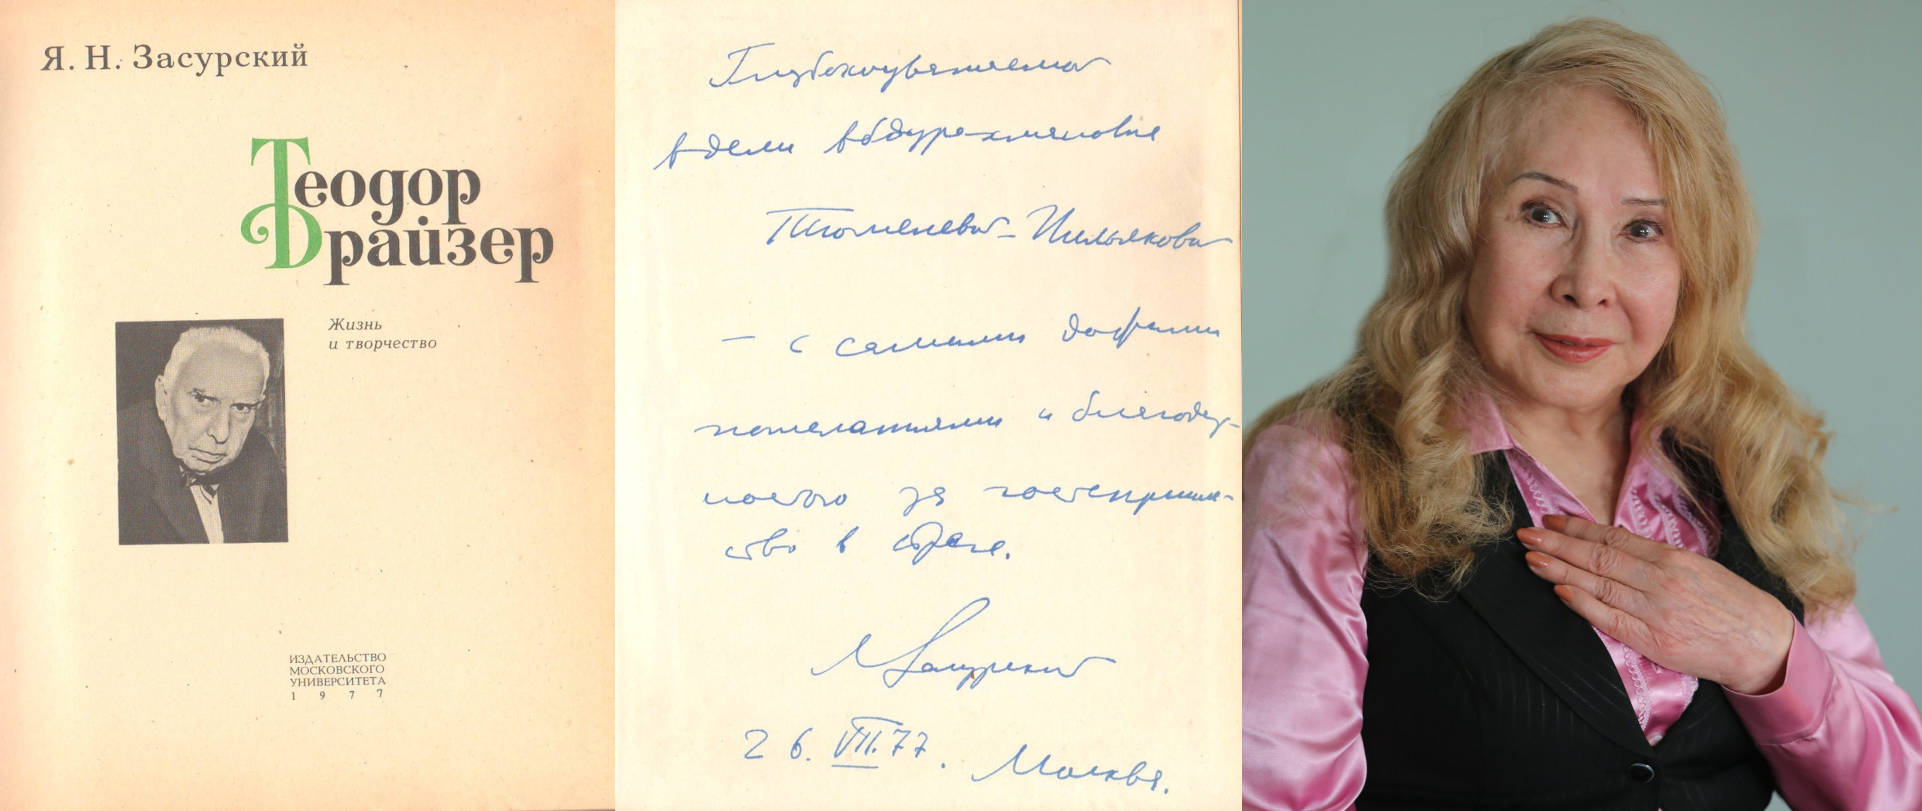 Я. Н. Засурский
Теодор
Драйзер
Жизнь
и творчество
ИЗДАТЕЛЬСТВО
МОСКОВСКОГО
УНИВЕРСИТЕТА
1977
Глубокоуважаемой
Адели Абдурахмановне
Тюменевой-Пильяковой
— с самыми добрыми
пожеланиями и благодар-
ностью за гостеприим-
ство в
Я Засурский
26.VII.77. Москва.